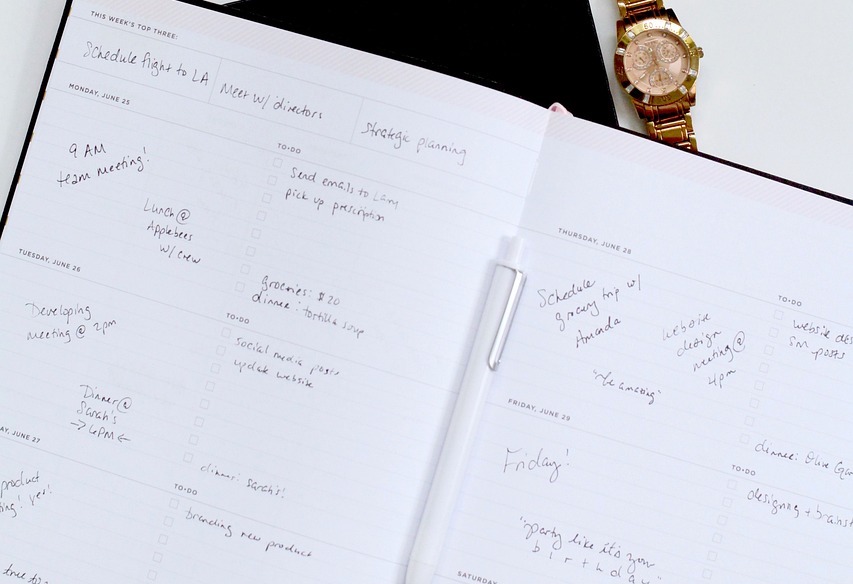 THIS WEEK'S TOP THREE:
Schedule flight to LA
Meet w/ directors
strategic planning
MONDAY, JUNE 25
9 AM
team meeting!
Lunch @
Applebees
w/ crew
TO-DO
Send emails to Larry
pick up prescription
groceries: $20
dinner: tortilla soup
TUESDAY, JUNE 26
Developing
meeting @ 2pm
Dinner @
Sarah's
→ 6PM ←
TO-DO
social media posts
update website
dinner: Sarah's!
AY, JUNE 27
product
ting! yes!
TO-DO
branding new product
THURSDAY, JUNE 28
Schedule
grocery trip w/
Amanda
website
design
meeting @
4pm
"be amazing"
TO-DO
website des
SM posts
dinner: Olive Gar
FRIDAY, JUNE 29
Friday!
"party like it's your
birthday"
TO-DO
designing + brainst
SATURDAY